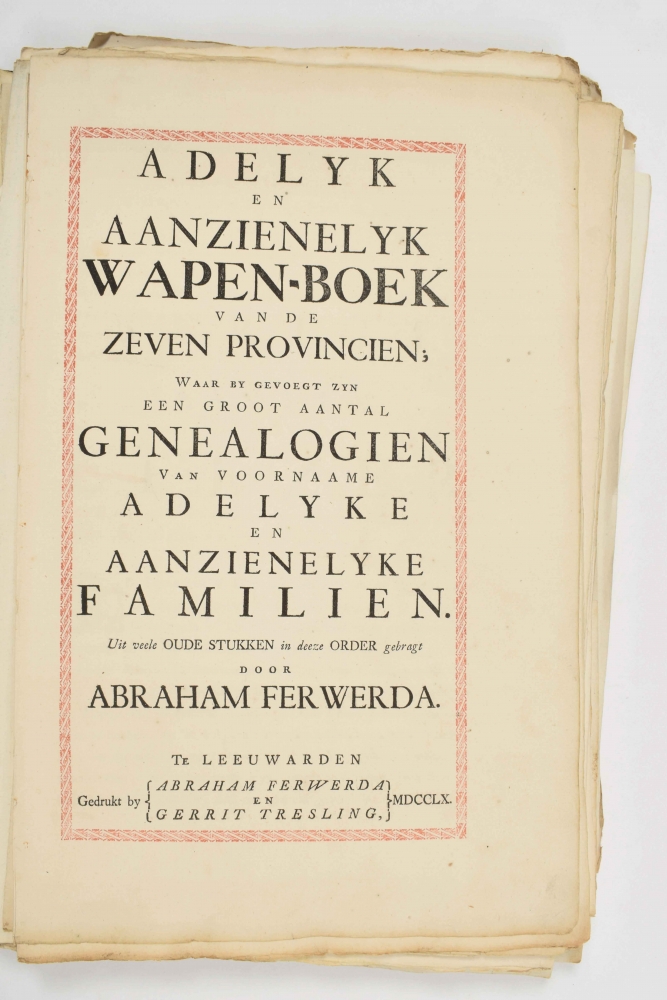 ADELYK
EN
AANZIENELYK
WAPEN-BOEK
VAN DE
ZEVEN PROVINCIEN;
WAAR BY GEVOEGT ZYN
EEN GROOT AANTAL
GENEALOGIEN
VAN VOORNAAME
ADELYKE
EN
AANZIENELYKE
FAMILIEN.
Uit veele OUDE STUKKEN in deeze ORDER gebragt
DOOR
ABRAHAM FERWERDA.
TE LEEUWARDEN
ABRAHAM FERWERDA
Gedrukt by { EN } MDCCLX.
GERRIT TRESLING,